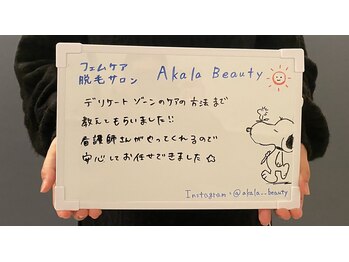 フェムケア
脱毛サロン
Akala Beauty
デリケートゾーンのケアの方法まで
教えてもらいました!!
看護師さんがやってくれるので
安心してお任せできました☆
Instagram・@akala..beauty